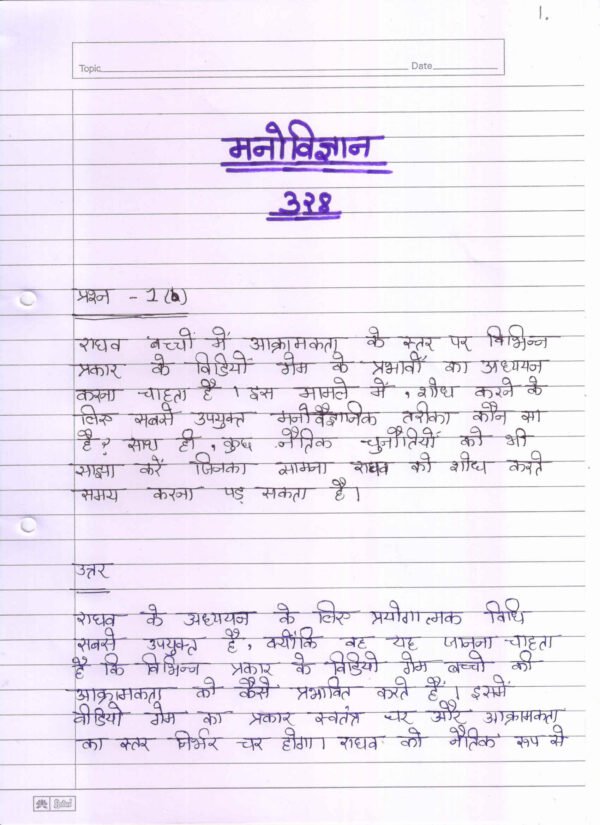 1.
Topic
Date
मनोविज्ञान
३२४
प्रश्न - 1(b)
राघव बच्चों में आक्रामकता के स्तर पर विभिन्न
प्रकार के विडियों गेम के प्रभावों का अध्ययन
करना चाहता है । इस मामले में , शोध करने के
लिए सबसे उपयुक्त मनोवैज्ञानिक तरीका कौन सा
है ? साथ ही , कुछ नैतिक चुनौतियों को भी
साझा करें जिनका सामना राघव को शोध करते
समय करना पड़ सकता है ।
उत्तर
राघव के अध्ययन के लिए प्रयोगात्मक विधि
सबसे उपयुक्त है , क्योंकि वह यह जानना चाहता
है कि विभिन्न प्रकार के विडियो गेम बच्चो की
आक्रामकता को कैसे प्रभावित करते हैं । इसमें
वीडियो गेम का प्रकार स्वतंत्र चर और आक्रामकता
का स्तर निर्भर चर होगा । राघव को नैतिक रूप से